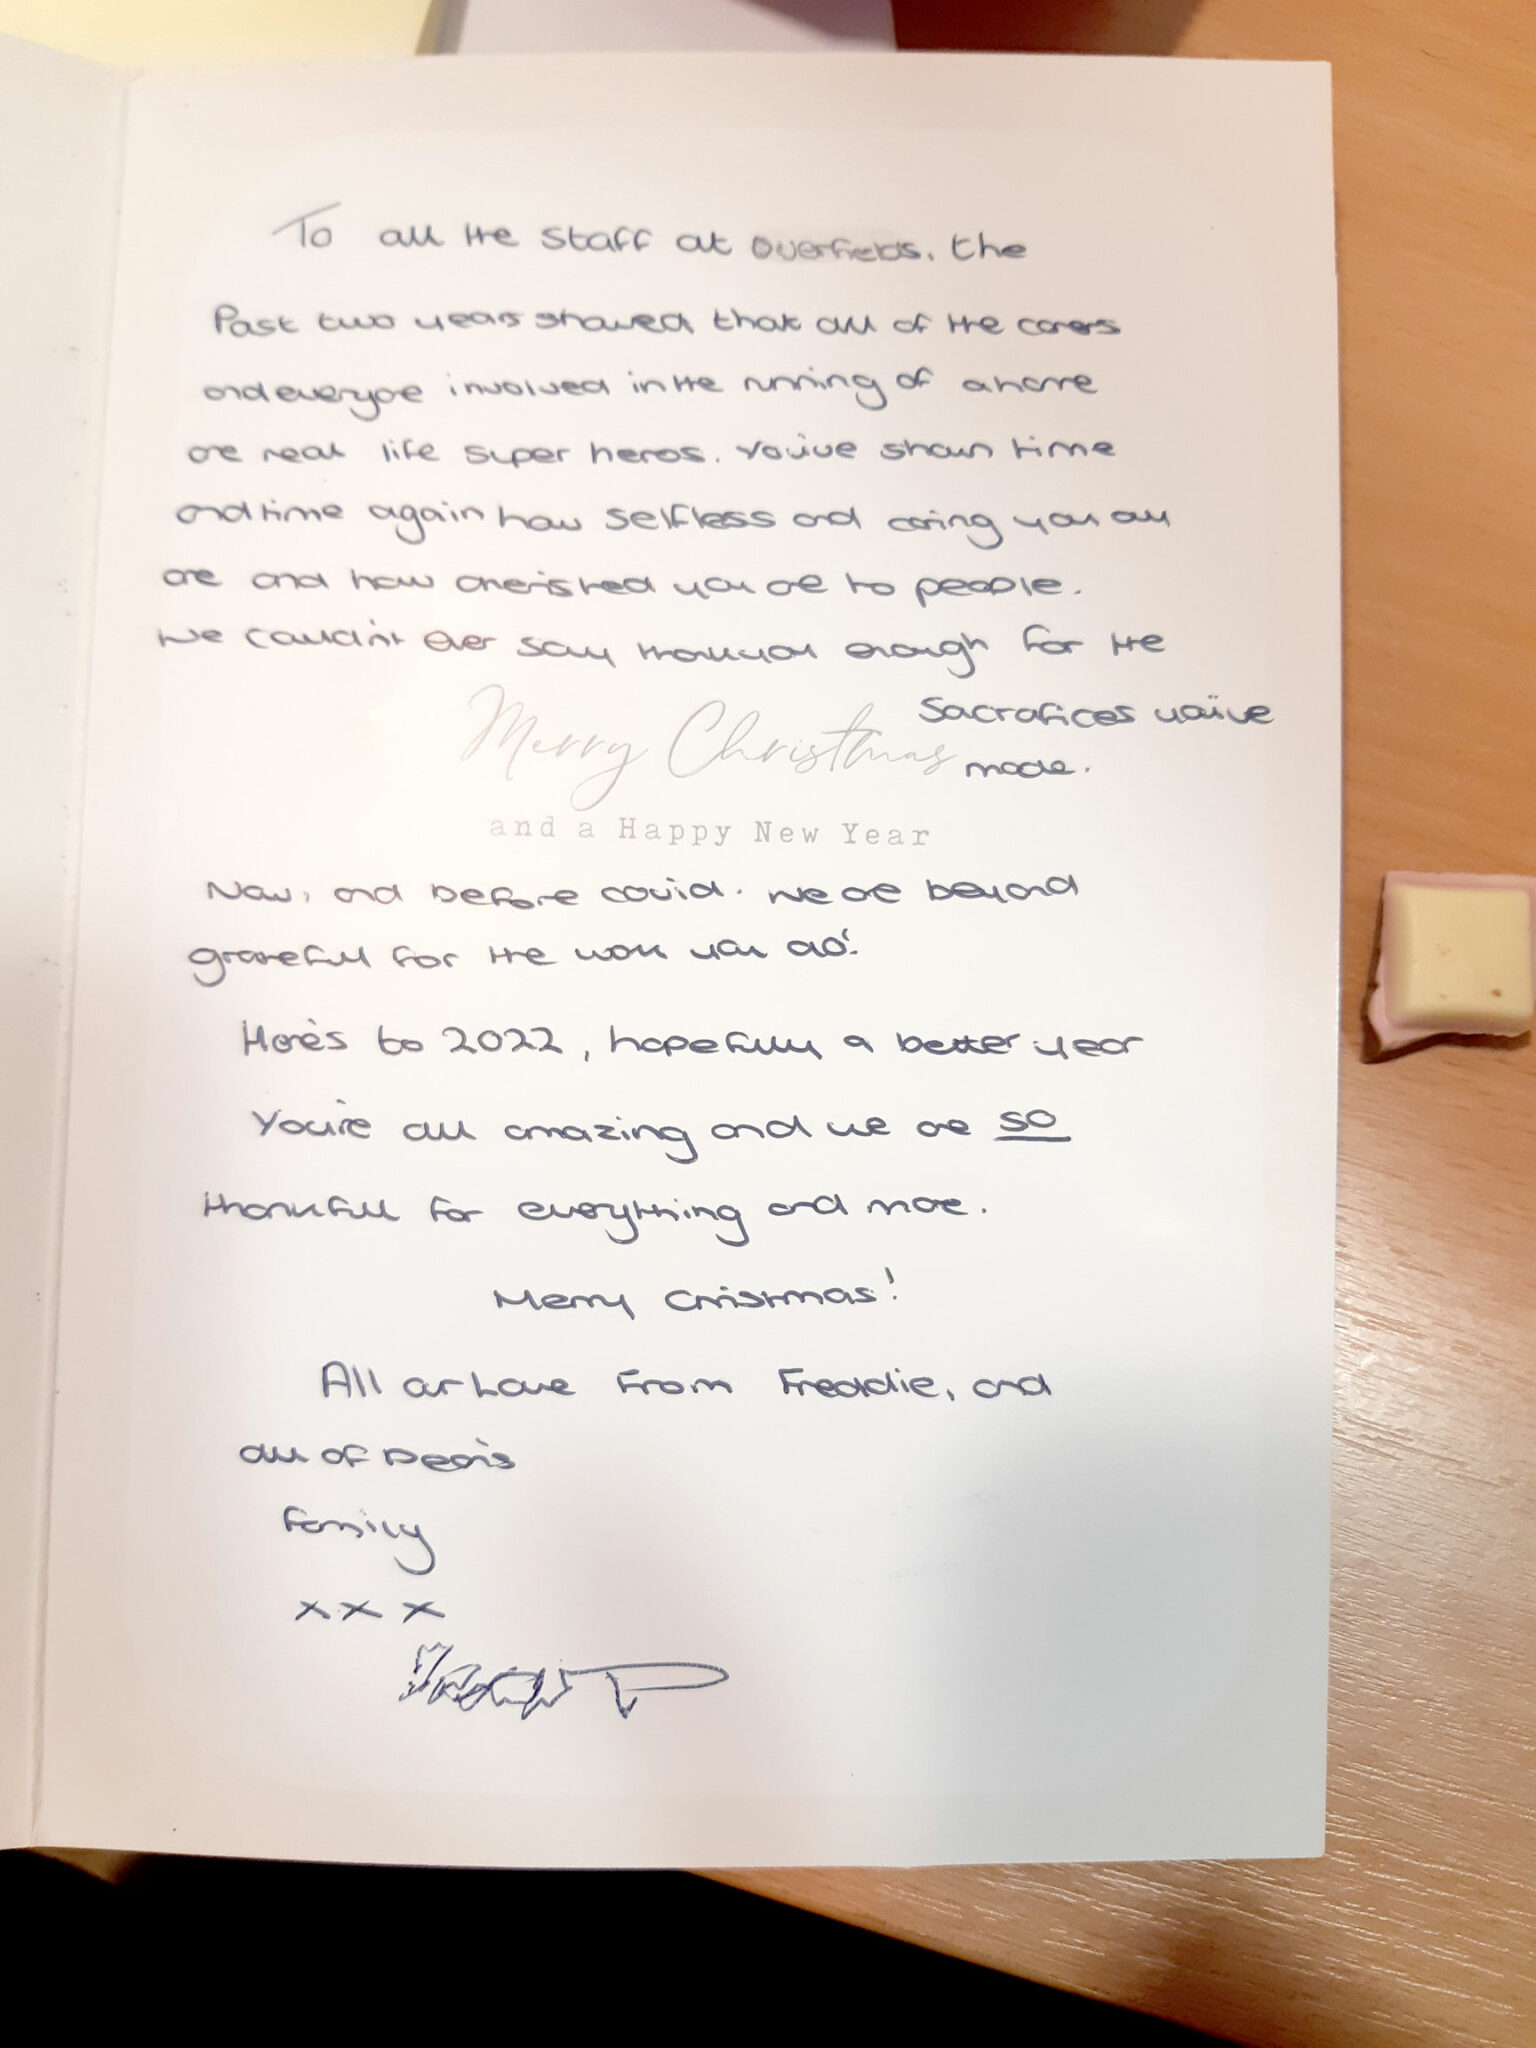 To all the staff at Overfields. the
Past two years showed that all of the carers
and everyone involved in the running of a home
are real life super heros. You've shown time
and time again how selfless and caring you all
are and how cherished you are to people.
We couldn't ever say thankyou enough for the
Sacrafices you've
made.
Merry Christmas
and a Happy New Year
Now, and before covid. We are beyond
grateful for the work you do!
Here's to 2022, hopefully a better year
You're all amazing and we are so
thankfull for everything and more.
Merry Christmas!
All our Love From Freddie, and
all of
Family
xxx